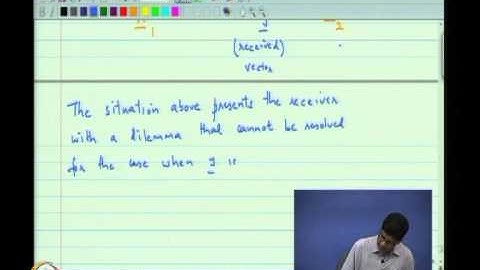 1 y 2
(received)
vector
The situation above presents the receiver
with a dilemma that cannot be resolved
for the case when y is